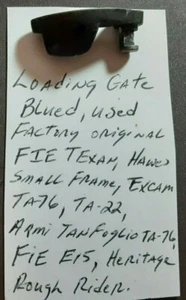 Loading Gate
Blued, used
Factory original
FIE Texan, Hawes
Small Frame, Excam
TA-76, TA-22,
Armi Tanfoglio TA-76,
FIE E15, Heritage
Rough Rider.